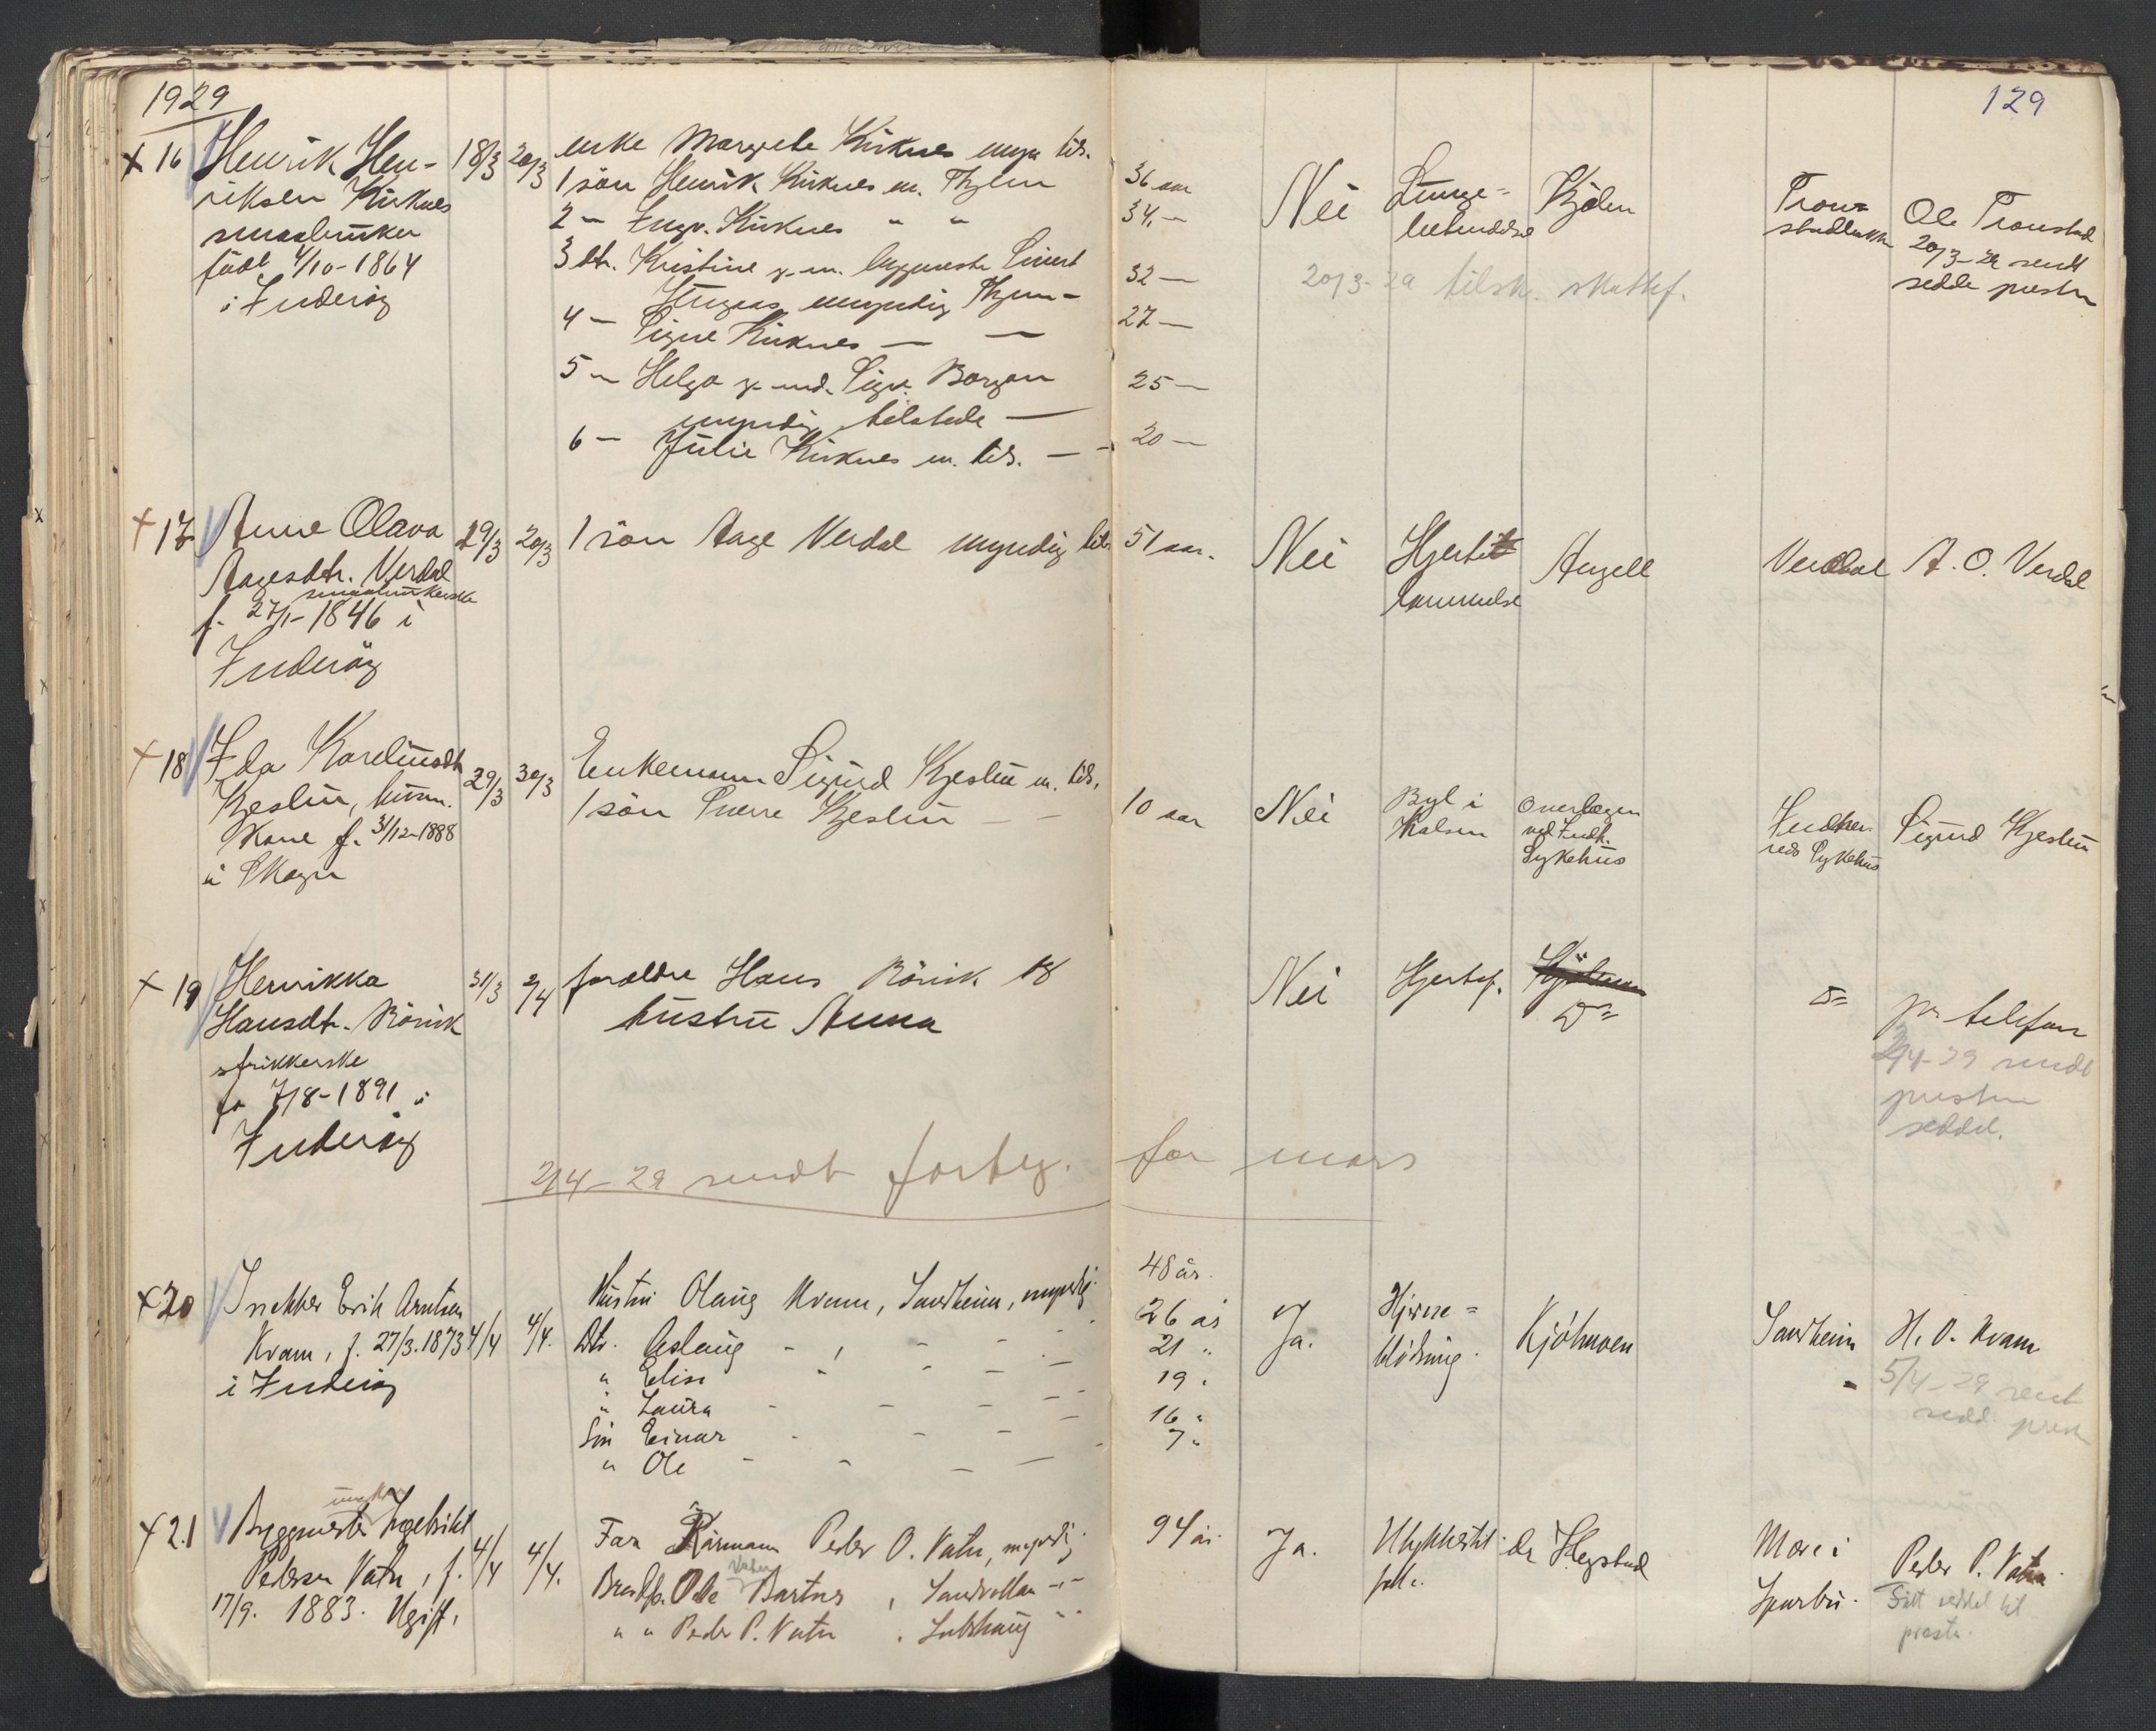 1929
129
+ 16 Henrik Hen-
riksen Kirknes
smaabruker
født 4/10-1864
i Inderøy
18/3 20/3
enke Margrete Kirknes mynd. tils.
1 sön Henrik Kirknes m. Thjem
2 - Ingv. Kirknes " "
3 dtr. Kristine g. m. byggmester Sivert
myndig Thjem -
4 - Signe Kirknes - -
5 - Helga g. md. Sigv. Borgan
myndig tilstede -
6 - Julie Kirknes m. tils. - -
36 aar
34 -
32 -
27 -
25 -
20 -
Nei
Lunge-
betendelse
Kjölen
20/3-29 tilsk. skattef.
Tron-
stadbakken
Ole Tronstad
20/3-29 sendt
seddel presten
+ 17 Anne Olava
Aagesdtr. Verdal
smaabrukerske
f. 27/1-1846 i
Inderöy
19/3 20/3
1 sön Aage Verdal myndig tils
51 aar.
Nei
Hjerte
lammelse
Angell
Verdal
A. O. Verdal
+ 18 Ida Karelinusdtr
Kjeslin, husm.
kone f. 31/12-1888
i Skogn
29/3 30/3
Enkemann Sigurd Kjeslin m. tils.
1 sön Sverre Kjeslin - -
10 aar
Nei
Byl i
halsen
Overlægen
ved Indh.
Sykehus
Indher-
reds Sykehus
Sigurd Kjeslin
+ 19 Henrikka
Hansdtr. Rörvik
strikkerske
f. 7/8-1891 i
Inderöy
31/3 2/4
forældre Hans Rörvik og
hustru Anna
Nei
Hjertef.
Do
Do
pr telefon
2/4-29 sendt
presten
seddel.
2/4-29 sendt forteg. for mars
+ 20 Snekker Erik Arntsen
Kvam, f. 27/3.1873
i Inderøy
4/4 4/4.
Hustru Olaug Kvam, Sandheim, myndig.
Dtr. Aslaug - , - - -
" Elise - - - -
" Laura - - - -
Sön Einar - - - -
" Ole - - - -
48 år.
26 år
21 "
19 "
16 "
7 "
Ja.
Hjerne=
blödning.
Kjölmoen
Sandheim
H. O. Kvam
5/4-29 sendt
sedd. prest
+ 21 Byggmester Ingebrikt
Pedersen Vatn, f.
17/9. 1883. Ugift.
4/4 4/4.
Far Kårmann Peder O. Vatn, myndig.
Vatn
Brødb. Ole Bartnes , Sandvollan -"-
" " Peder P. Vatn , " "
94 år.
Ja.
Ulykkestil-
felle.
dr Hegstad
Mære i
Sparbu.
Peder P. Vatn
Sendt seddel til
prest.